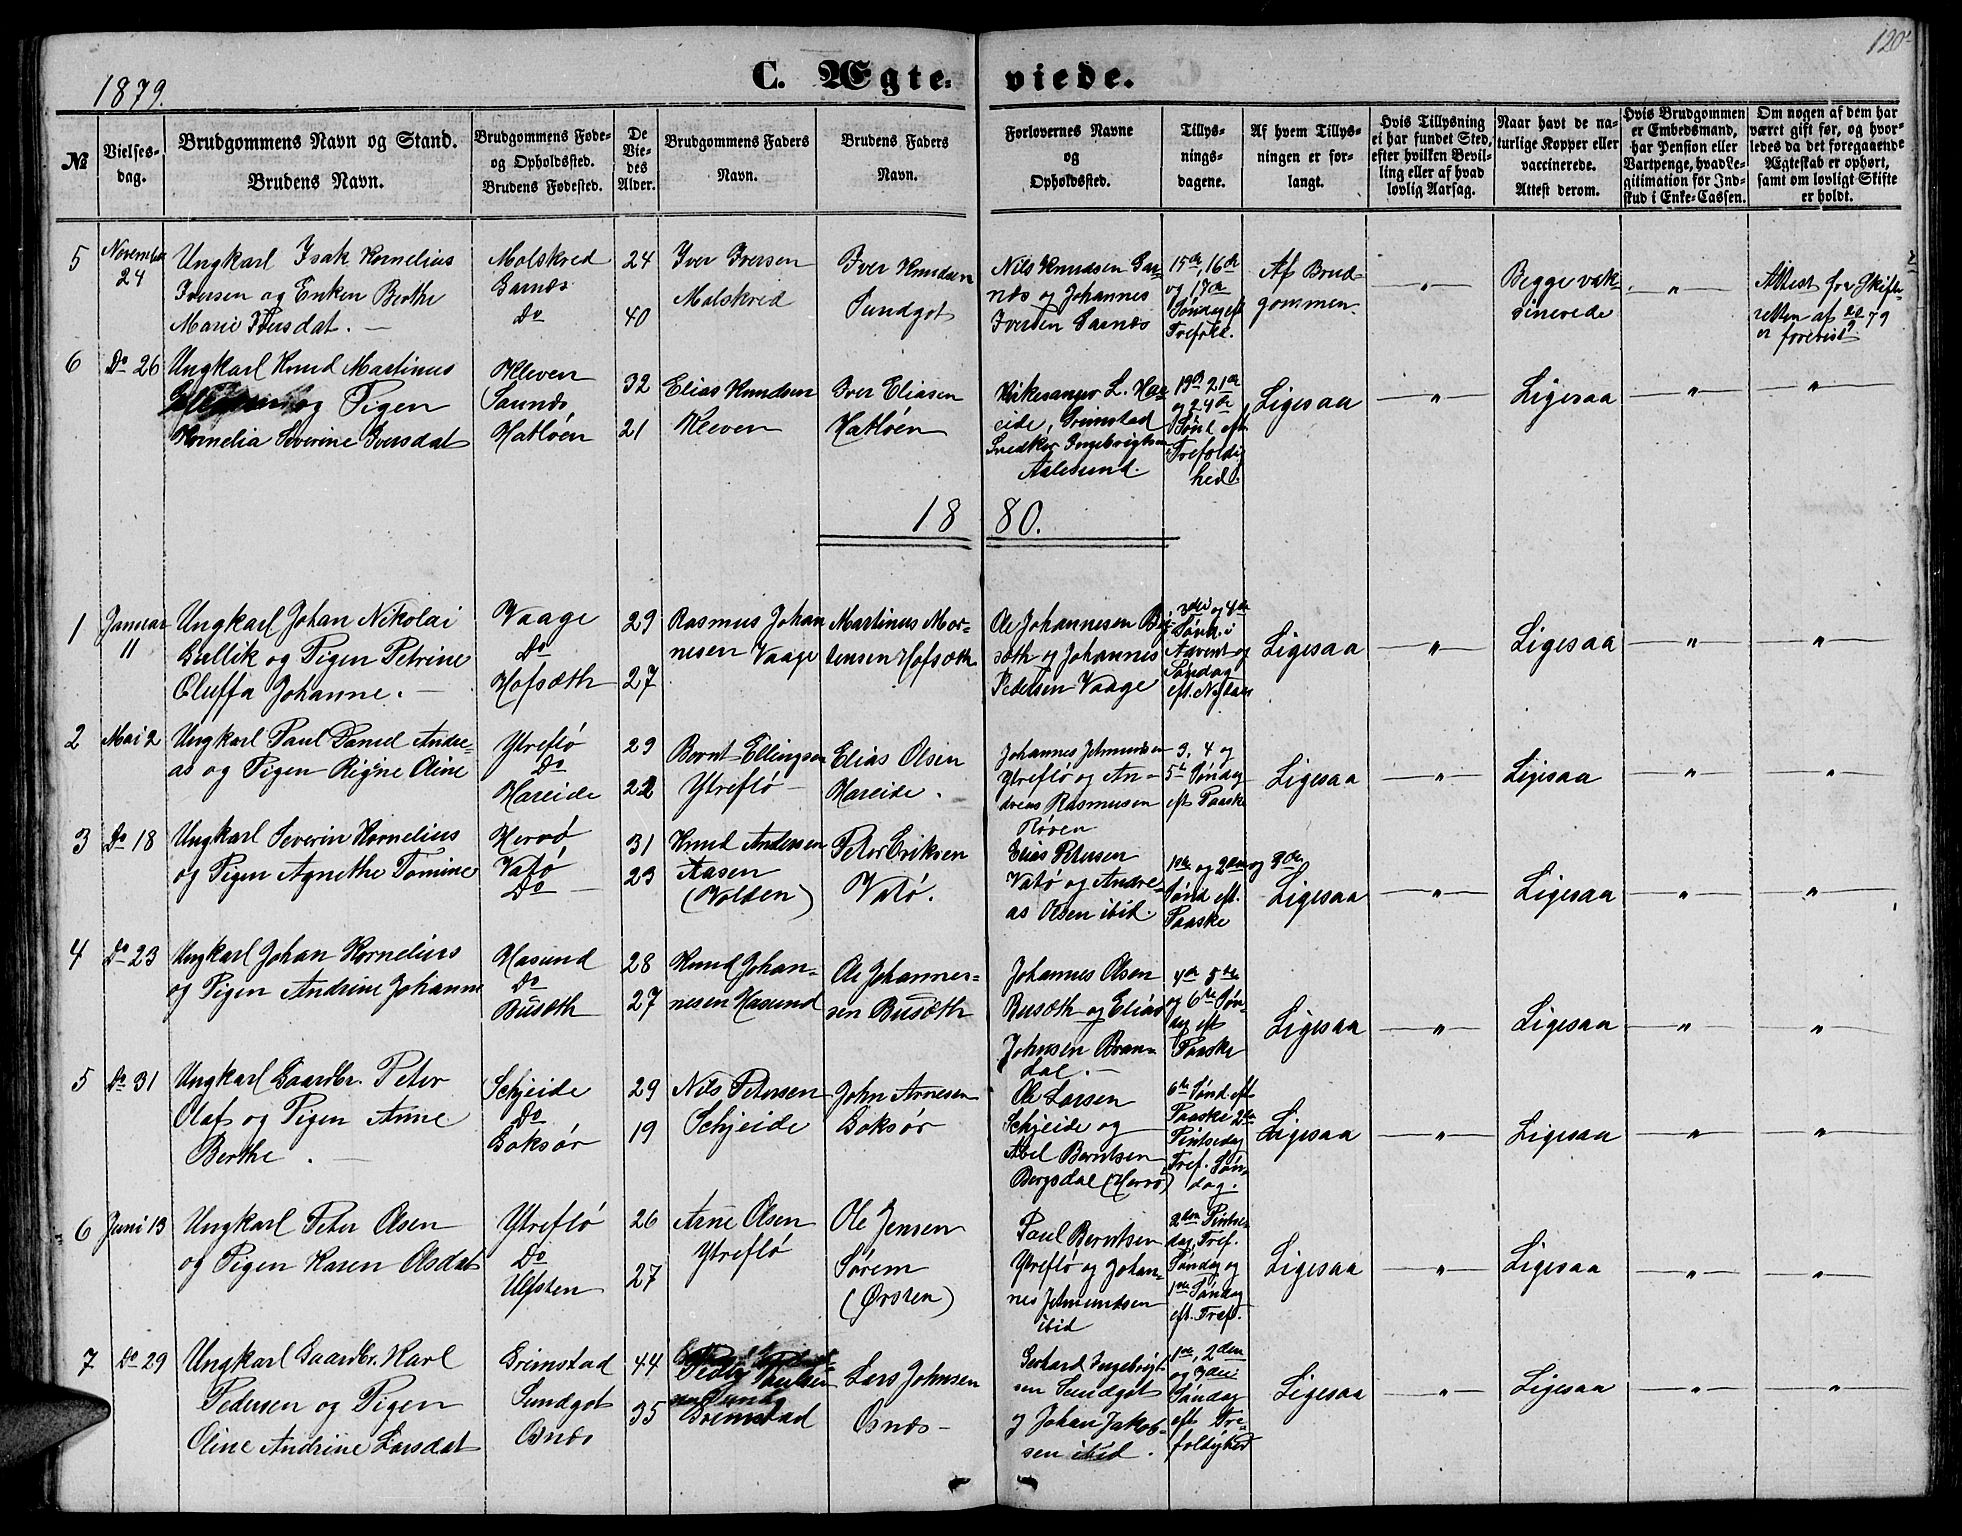 120
1879.
C. Ægteviede.
№
Vielsesdag.
Brudgommens Navn og Stand.
Brudens Navn.
Brudgommens Føde- og Opholdssted.
Brudens Fødested.
De Viedes Alder.
Brudgommens Faders Navn.
Brudens Faders Navn.
Forlovernes Navne og Opholdssted.
Tillysningsdagene.
Af hvem Tillysningen er forlangt.
Hvis Tillysning ei har fundet Sted, efter hvilken Bevilling eller af hvad lovlig Aarsag.
Naar havt de naturlige Kopper eller vaccinerede.
Attest derom.
Hvis Brudgommen er Embedsmand, har Pension eller Vartpenge, hvad Legitimation for Indskud i Enke-Cassen.
Om nogen af dem har været gift før, og hvorledes da det foregaaende Ægteskab er ophørt, samt om lovligt Skifte er holdt.
5 November 24
Ungkarl Isak Kornelius
Iversen og Enken Berthe
Marie Iversdat. —
Molskred
Garnæs
Do
24
40
Iver Iversen
Molskred
Iver Knudsen
Sundgot
Nils Knudsen Garnæs og Johannes
Iversen Garnæs
15de, 16de
og 17de
Søndag eft
Trefold.
Af Brudgommen.
— " —
Begge vaksinerede
— " —
Attest fra Skifteretten af 20/9 79
er forevist
6 Do 26
Ungkarl Knud Martinus
og Pigen
Kornelia Severine Iversdat
Kleven
Saunds
Hatløen
32
21
Elias Knudsen
Kleven
Iver Eliasen
Hatløen
Kirkesanger L. Hareide, Grimstad
Snedker Ingebrigtsen
Aalesund.
19de 21de
og 24de
Sønd eft
Trefoldighed.
Ligesaa
— " —
Ligesaa
— " —
— " —
1880.
1 Januar 11
Ungkarl Johan Nikolai
Gullik og Pigen Petrine
Oluffa Johanne. —
Vaage
Do
Hofsæth
29
27
Rasmus Johannesen Vaage
Martinus Mortensen Hofsæth
Ole Johannesen
og Johannes
Pedersen Vaage
3die og 4de
Sønd. i
Advent og
Søndag
eft. Nytaar
Ligesaa
— " —
Ligesaa
— " —
— " —
2 Mai 2
Ungkarl Paul Daniel Andreas og Pigen Rigne Oline
Ytreflø
Do
Hareide
29
22
Bernt Ellingsen
Ytreflø
Elias Olsen
Hareide.
Johannes Jetmundsen
Ytreflø og Andreas Rasmusen
Røren
3, 4 og
5te Søndag
eft Paaske
Ligesaa
— " —
Ligesaa
— " —
— " —
3 Do 18
Ungkarl Severin Kornelius
og Pigen Agnethe Tomine
Herrø
Vatø
Do
31
23
Knud Andersen
Aasen
(Volden)
Peter Eriksen
Vatø.
Elias Petersen
Vatø og Andreas Olsen ibid.
1ste og 2den og 3die
Sønd eft.
Paaske
Ligesaa
— " —
Ligesaa
— " —
— " —
4 Do 23
Ungkarl Johan Kornelius
og Pigen Andrine Johanne
Hasund
Do
Busæth
28
27
Knud Johannesen Hasund
Ole Johannessen Busæth
Johannes Olsen
Busæth og Elias
Johnsen Brandal. —
4de 5te
og 6te Søndag eft
Paaske
Ligesaa
— " —
Ligesaa
— " —
— " —
5 Do 31
Ungkarl Gaardbr. Peter
Olaf og Pigen Anne
Berthe . —
Schjeide
Do
Goksør
29
19
Nils Petersen
Schjeide
John Arnesen
Goksør
Ole Larsen
Schjeide og
Abel Berntsen
Bergsdal (Herrø)
6te Sønd eft
Paaske 2den
Pintsedag
Tref. Søndag.
Ligesaa
— " —
Ligesaa
— " —
— " —
6 Juni 13
Ungkarl Peter Olsen
og Pigen Karen Olsdat
Ytreflø
Do
Ulfsten
26
27
Arne Olsen
Ytreflø
Ole Jensen
Sørem
(Ørsten)
Paul Berntsen
Ytreflø og Johannes Jetmundsen
ibid
2den Pintsedag, Tref.
Søndag og
1ste Søndag
eft. Tref.
Ligesaa
— " —
Ligesaa
— " —
— " —
7 Do 29
Ungkarl Gaardbr. Karl
Pedersen og Pigen
Oline Andrine Larsdat
Grimstad
Sundgot
Osnæs
44
35
Peder Paulsen
Grimstad
Lars Johnsen
Osnæs —
Gerhard Ingebrigtsen Sundgot
og Johan Jakobsen ibid.
1ste, 2den
og 3die
Søndag
eft Trefoldighed
Ligesaa
— " —
Ligesaa
— " —
— " —